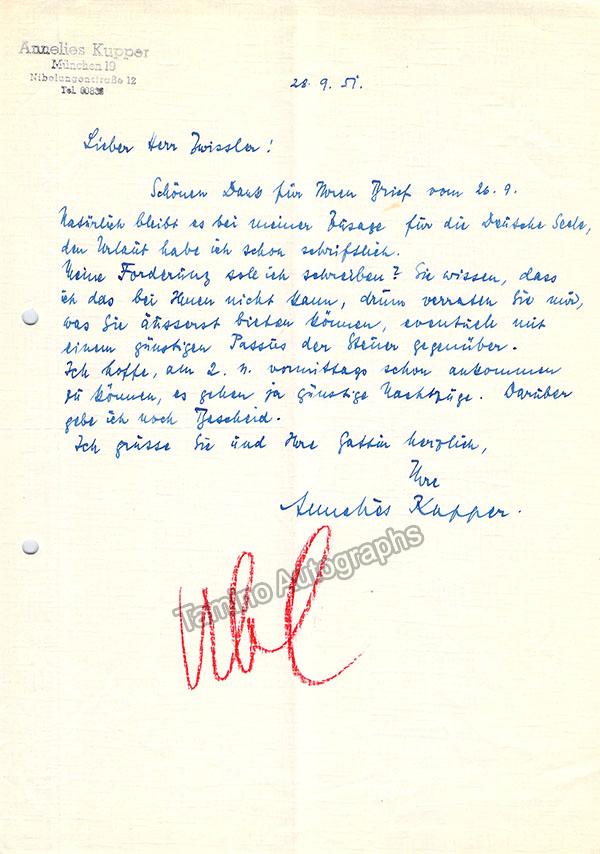 Annelies Kupper
München 19
Nibelungenstraße 12
Tel. 60838
28. 9. 51.
Lieber Herr Zwissler!
Schönen Dank für Ihren Brief vom 26. 9.
Natürlich bleibt es bei meiner Zusage für die Deutsche Seele,
den Urlaub habe ich schon schriftlich.
Meine Forderung soll ich schreiben? Sie wissen, dass
ich das bei Ihnen nicht kann, drum verraten Sie mir,
was Sie äusserst bieten können, eventuell mit
einem günstigen Passus der Steuer gegenüber.
Ich hoffe, am 2. n. vormittags schon ankommen
zu können, es gehen ja günstige Nachtzüge. Darüber
gebe ich noch Bescheid.
Ich grüsse Sie und Ihre Gattin herzlich,
Ihre
Annelies Kupper.
Tamino Autographs